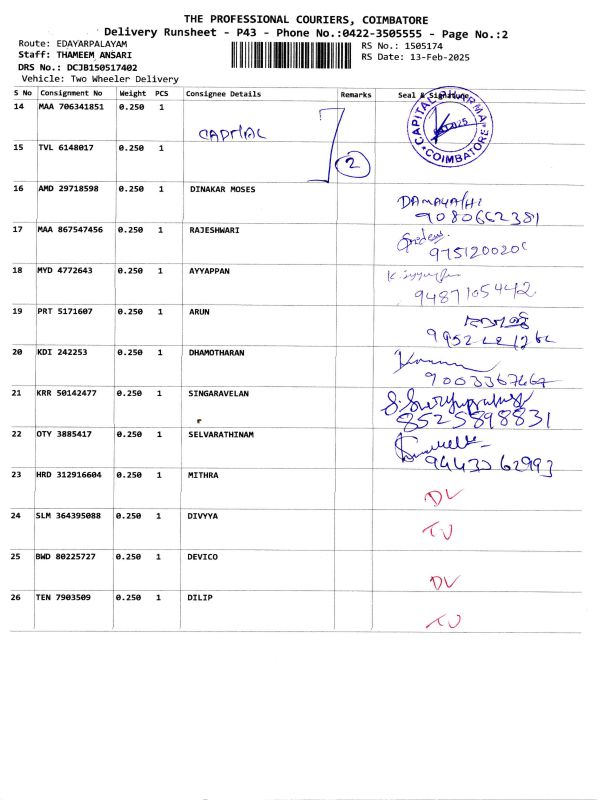 THE PROFESSIONAL COURIERS, COIMBATORE
Delivery Runsheet - P43 - Phone No.:0422-3505555 - Page No.:2
Route: EDAYARPALAYAM
Staff: THAMEEM ANSARI
DRS No.: DCJB150517402
Vehicle: Two Wheeler Delivery
RS No.: 1505174
RS Date: 13-Feb-2025
S No Consignment No Weight PCS Consignee Details Remarks Seal & Signature
14 MAA 706341851 0.250 1
CAPITAL
CAPITAL PHARMA
COIMBATORE
15 TVL 6148017 0.250 1
2
16 AMD 29718598 0.250 1 DINAKAR MOSES
9080662381
17 MAA 867547456 0.250 1 RAJESHWARI
18 MYD 4772643 0.250 1 AYYAPPAN
9487105442
19 PRT 5171607 0.250 1 ARUN
20 KDI 242253 0.250 1 DHAMOTHARAN
21 KRR 50142477 0.250 1 SINGARAVELAN
8525898831
22 OTY 3885417 0.250 1 SELVARATHINAM
23 HRD 312916604 0.250 1 MITHRA
DV
24 SLM 364395088 0.250 1 DIVYYA
TV
25 BWD 80225727 0.250 1 DEVICO
DV
26 TEN 7903509 0.250 1 DILIP
TV